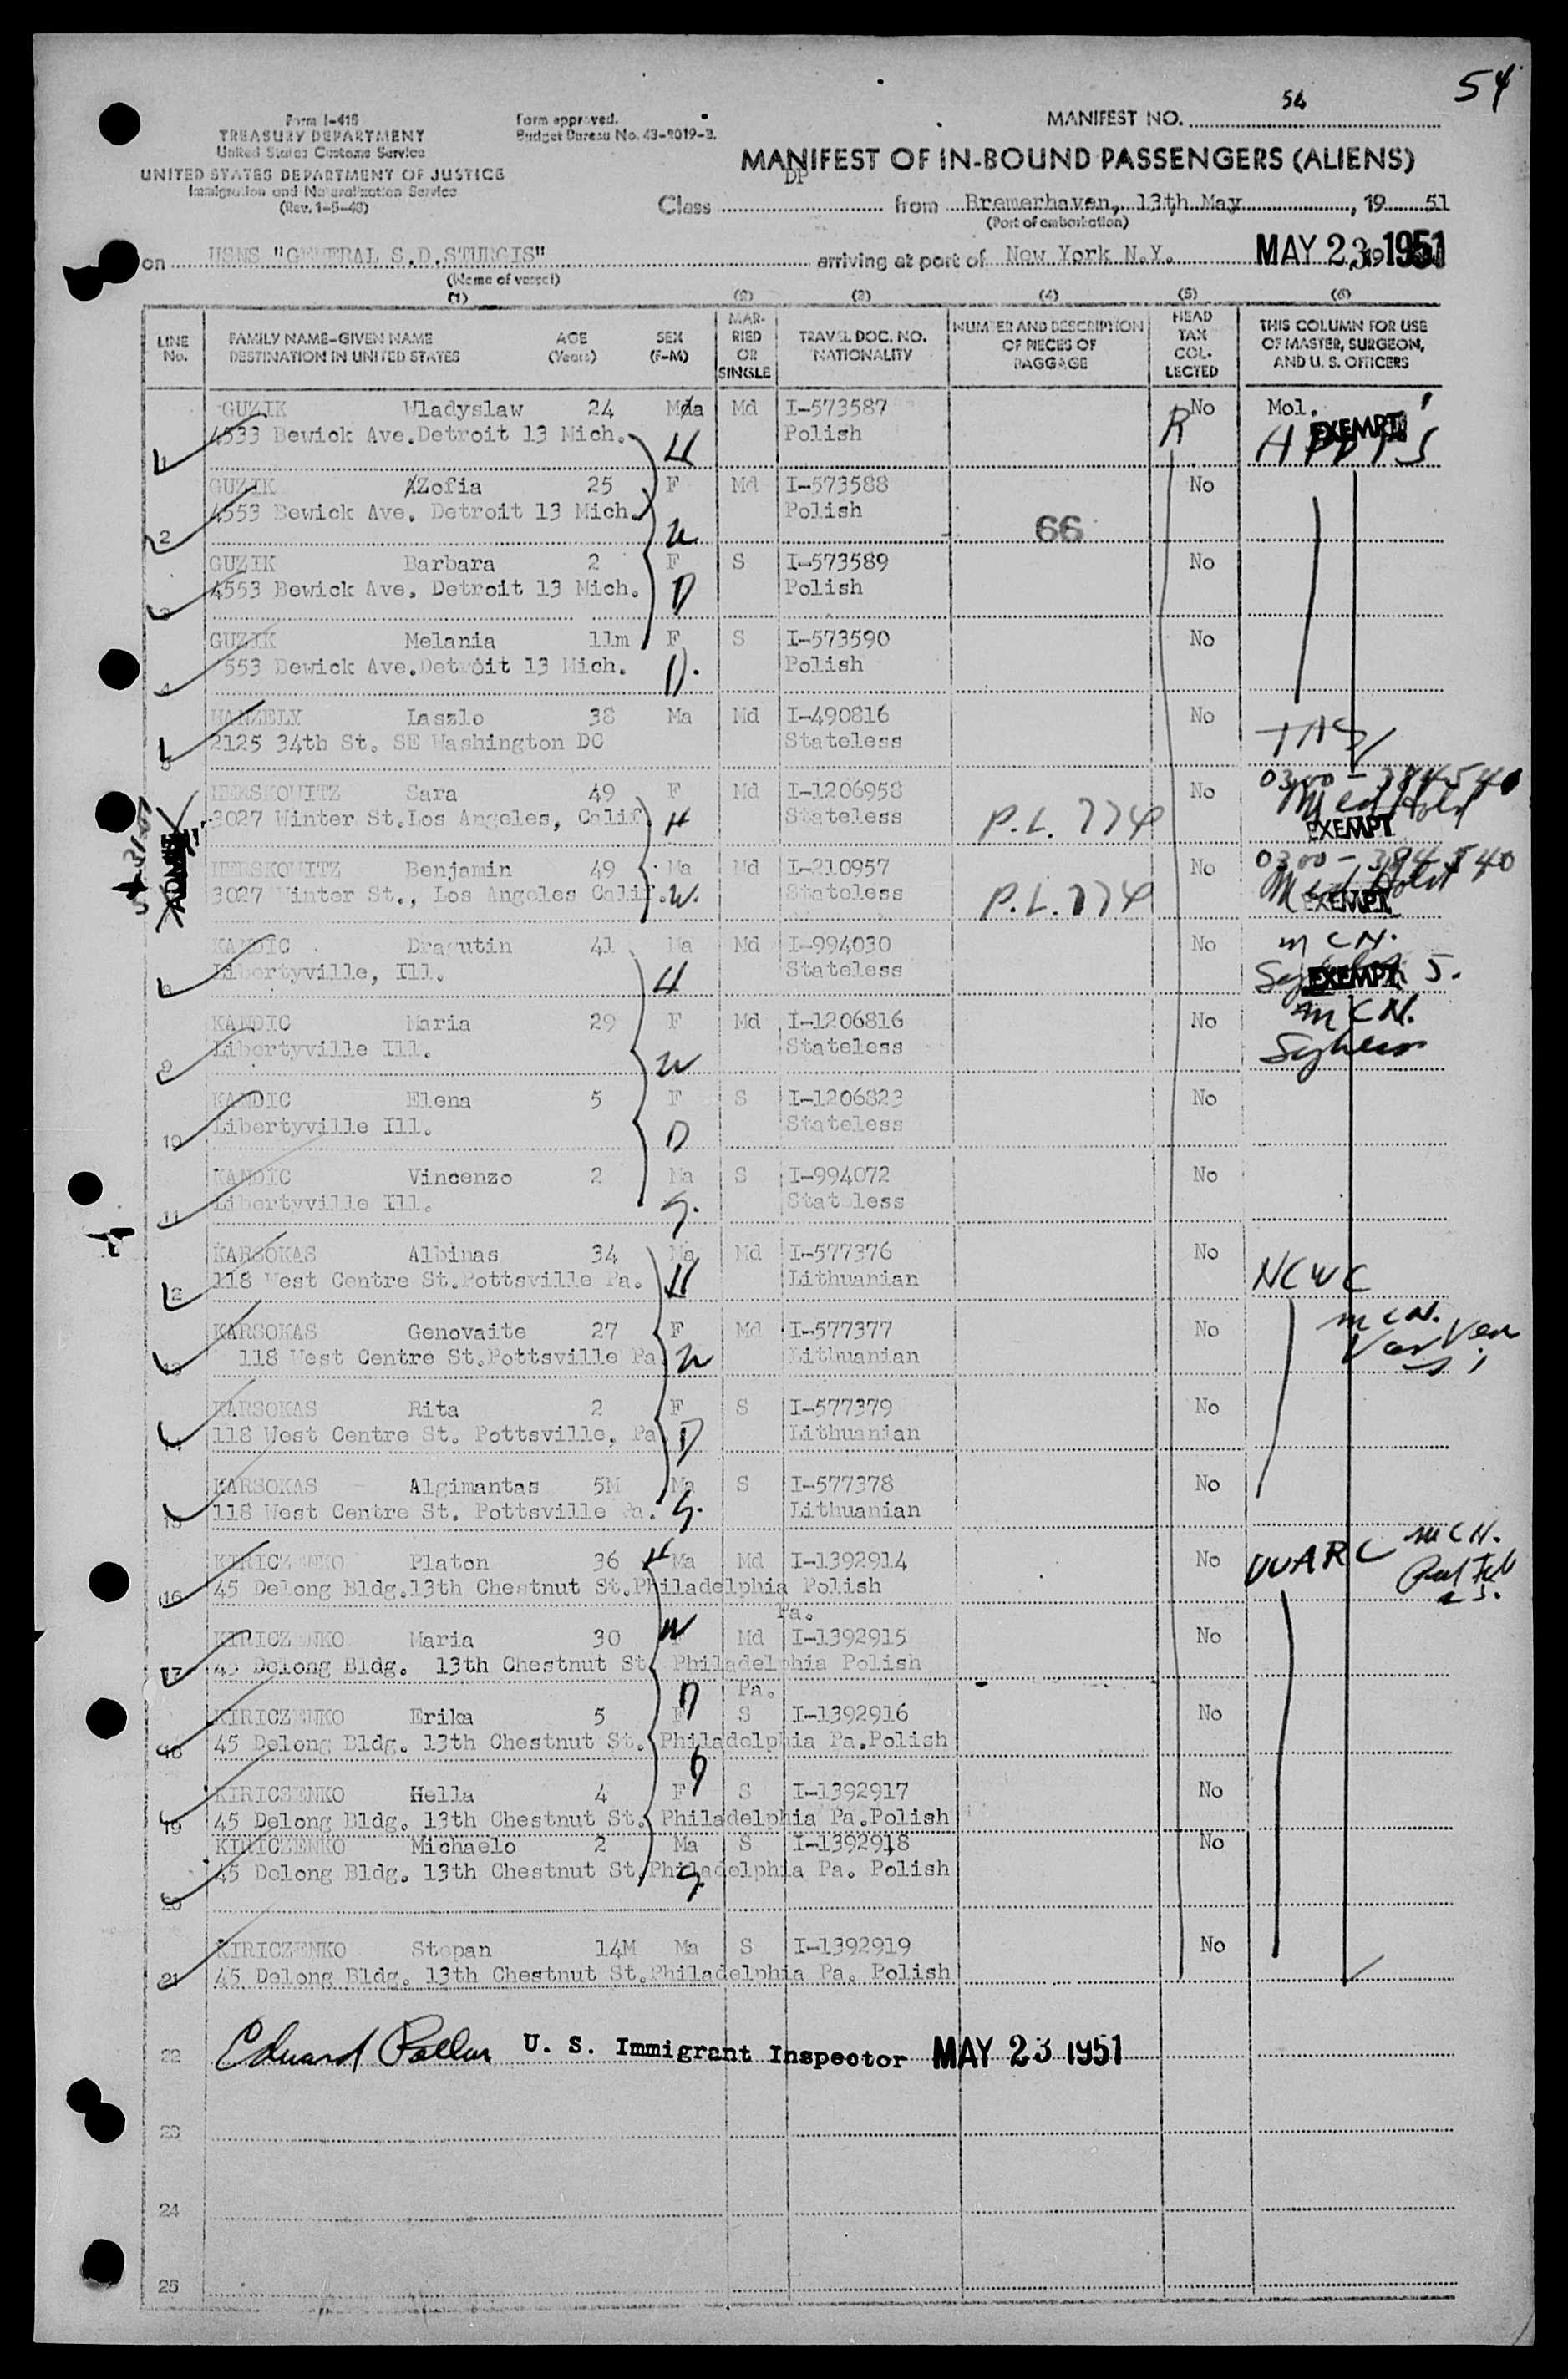 54
54
Form I-418
TREASURY DEPARTMENT
United States Customs Service
UNITED STATES DEPARTMENT OF JUSTICE
Immigration and Naturalization Service
(Rev. 1-5-48)
Form approved.
Budget Bureau No. 43-R019-3.
MANIFEST NO.
MANIFEST OF IN-BOUND PASSENGERS (ALIENS)
Class DP from Bremerhaven, 13th May, 19 51
(Port of embarkation)
on USNS "GENERAL S.D.STURGIS" arriving at port of New York N.Y. MAY 23 1951
(Name of vessel)
(1) (2) (3) (4) (5) (6)
LINE No. FAMILY NAME-GIVEN NAME DESTINATION IN UNITED STATES AGE (Years) SEX (F-M) MARRIED OR SINGLE TRAVEL DOC. NO. NATIONALITY NUMBER AND DESCRIPTION OF PIECES OF BAGGAGE HEAD TAX COLLECTED THIS COLUMN FOR USE OF MASTER, SURGEON, AND U. S. OFFICERS
GUZIK Wladyslaw 24 Ma Md I-573587 No Mol. EXEMPT
1 4533 Bewick Ave.Detroit 13 Mich. H Polish R
GUZIK Zofia 25 F Md I-573588 No
2 4553 Bewick Ave. Detroit 13 Mich. W Polish 66
GUZIK Barbara 2 F S I-573589 No
3 4553 Bewick Ave. Detroit 13 Mich. D Polish
GUZIK Melania 11m F S I-573590 No
4 553 Bewick Ave.Detroit 13 Mich. D. Polish
HANZELY Laszlo 38 Ma Md I-490816 No
5 2125 34th St. SE Washington DC Stateless
HERSKOVITZ Sara 49 F Md I-1206958 No 0300-384540
3027 Winter St.Los Angeles, Calif. H Stateless P.L. 774 Med Hold EXEMPT
HERSKOVITZ Benjamin 49 Ma Md I-210957 No 0300-384540
3027 Winter St., Los Angeles Calif. W. Stateless P.L. 774 Med Hold EXEMPT
KANDIC Dragutin 41 Ma Md I-994030 No m CN.
8 Libertyville, Ill. H Stateless EXEMPT 5.
KANDIC Maria 29 F Md I-1206816 No m CN.
9 Libertyville Ill. W Stateless
KANDIC Elena 5 F S I-1206823 No
10 Libertyville Ill. D Stateless
KANDIC Vincenzo 2 Ma S I-994072 No
11 Libertyville Ill. S. Stat less
KARSOKAS Albinas 34 Ma Md I-577376 No
12 118 West Centre St.Pottsville Pa. H Lithuanian NCWC
KARSOKAS Genovaite 27 F Md I-577377 No m CN.
13 118 West Centre St.Pottsville Pa W Lithuanian
KARSOKAS Rita 2 F S I-577379 No
118 West Centre St. Pottsville, Pa D Lithuanian
KARSOKAS Algimantas 5M Ma S I-577378 No
15 118 West Centre St. Pottsville Pa. S. Lithuanian
KIRICZENKO Platon 36 H Ma Md I-1392914 No m CN.
16 45 Delong Bldg.13th Chestnut St.Philadelphia Polish
Pa.
KIRICZENKO Maria 30 W F Md I-1392915 No
17 45 Delong Bldg. 13th Chestnut St. Philadelphia Polish
Pa.
KIRICZENKO Erika 5 D F S I-1392916 No
18 45 Delong Bldg. 13th Chestnut St. Philadelphia Pa.Polish
KIRICSENKO Hella 4 D F S I-1392917 No
19 45 Delong Bldg. 13th Chestnut St. Philadelphia Pa.Polish
KIRICZENKO Michaelo 2 Ma S I-1392918 No
20 45 Delong Bldg. 13th Chestnut St.Philadelphia Pa. Polish
S.
KIRICZENKO Stepan 14M Ma S I-1392919 No
21 45 Delong Bldg. 13th Chestnut St.Philadelphia Pa. Polish
22 U. S. Immigrant Inspector MAY 23 1951
23
24
25